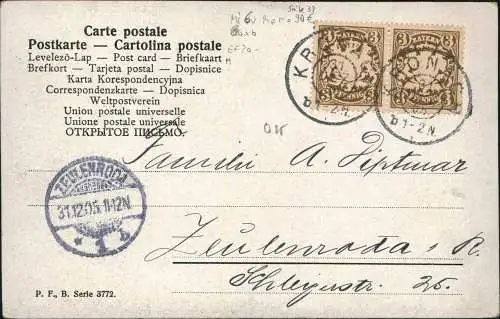 Carte postale
Postkarte — Cartolina postale
Levelezö-Lap — Post card — Briefkaart
Brefkort — Tarjeta postal — Dopisnice
Karta Korespondencyjna
Correspondenzkarte — Dopisnica
Weltpostverein
Union postale universelle
Unione postale universale
ОТКРЫТОЕ ПИСЬМО.
3 BAYERN 3
3 BAYERN 3
KRON
b 1-2N.
Familie A. Diptmar
ZEULENRODA
31.12.05.11-12N
* 1 *
Zeulenroda i. R.
Schleizerstr. 26.
P. F., B. Serie 3772.